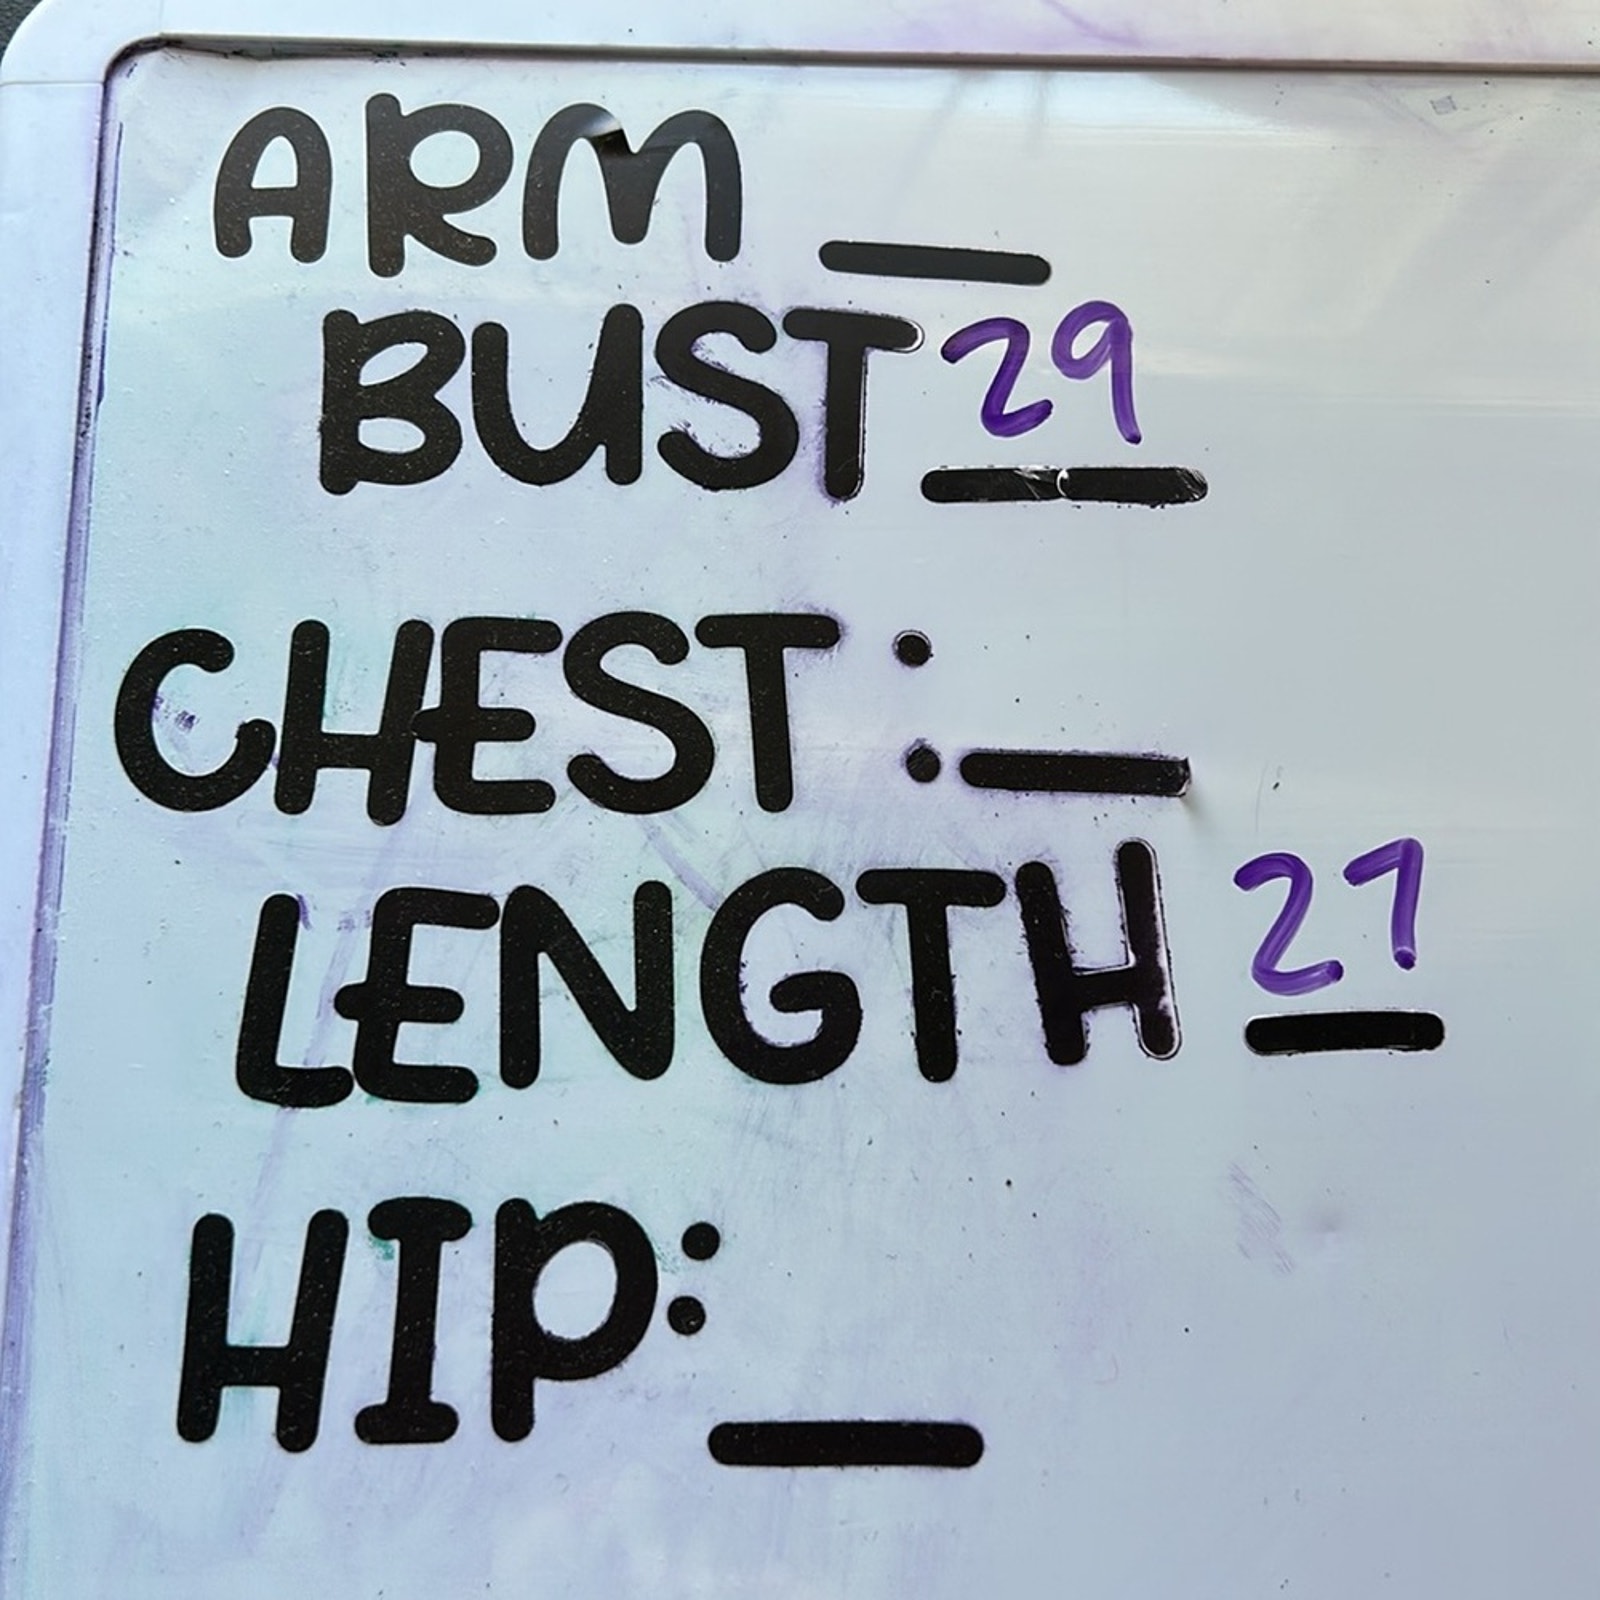 ARM __
BUST 29
CHEST : __
LENGTH 21
HIP: __